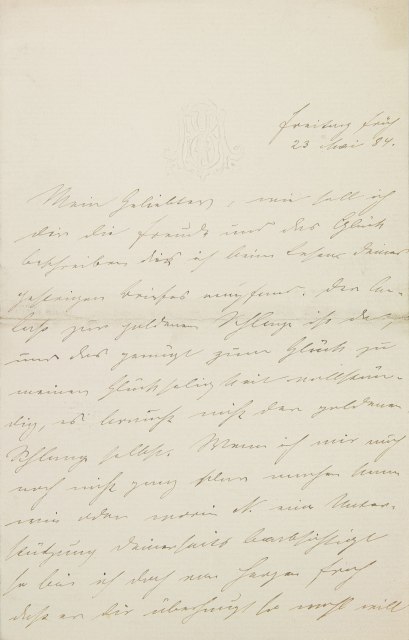 Freitag früh
23 Mai 84.
Mein Geliebter, wie soll ich
dir die Freude und das Glück
beschreiben die ich beim Lesen deines
gestrigen Briefes empfand. Der An-
laß zur goldenen Schlange ist da,
und das genügt zum Glück zu
meiner Glückseligkeit vollstän-
dig, es braucht nicht der goldenen
Schlange selbst. Wenn ich mir auch
noch nicht ganz klar machen kann
wie oder worin N. eine Unter-
stützung deinerseits beabsichtigt
so bin ich doch von Herzen froh
daß er dir überhaupt so wohl will